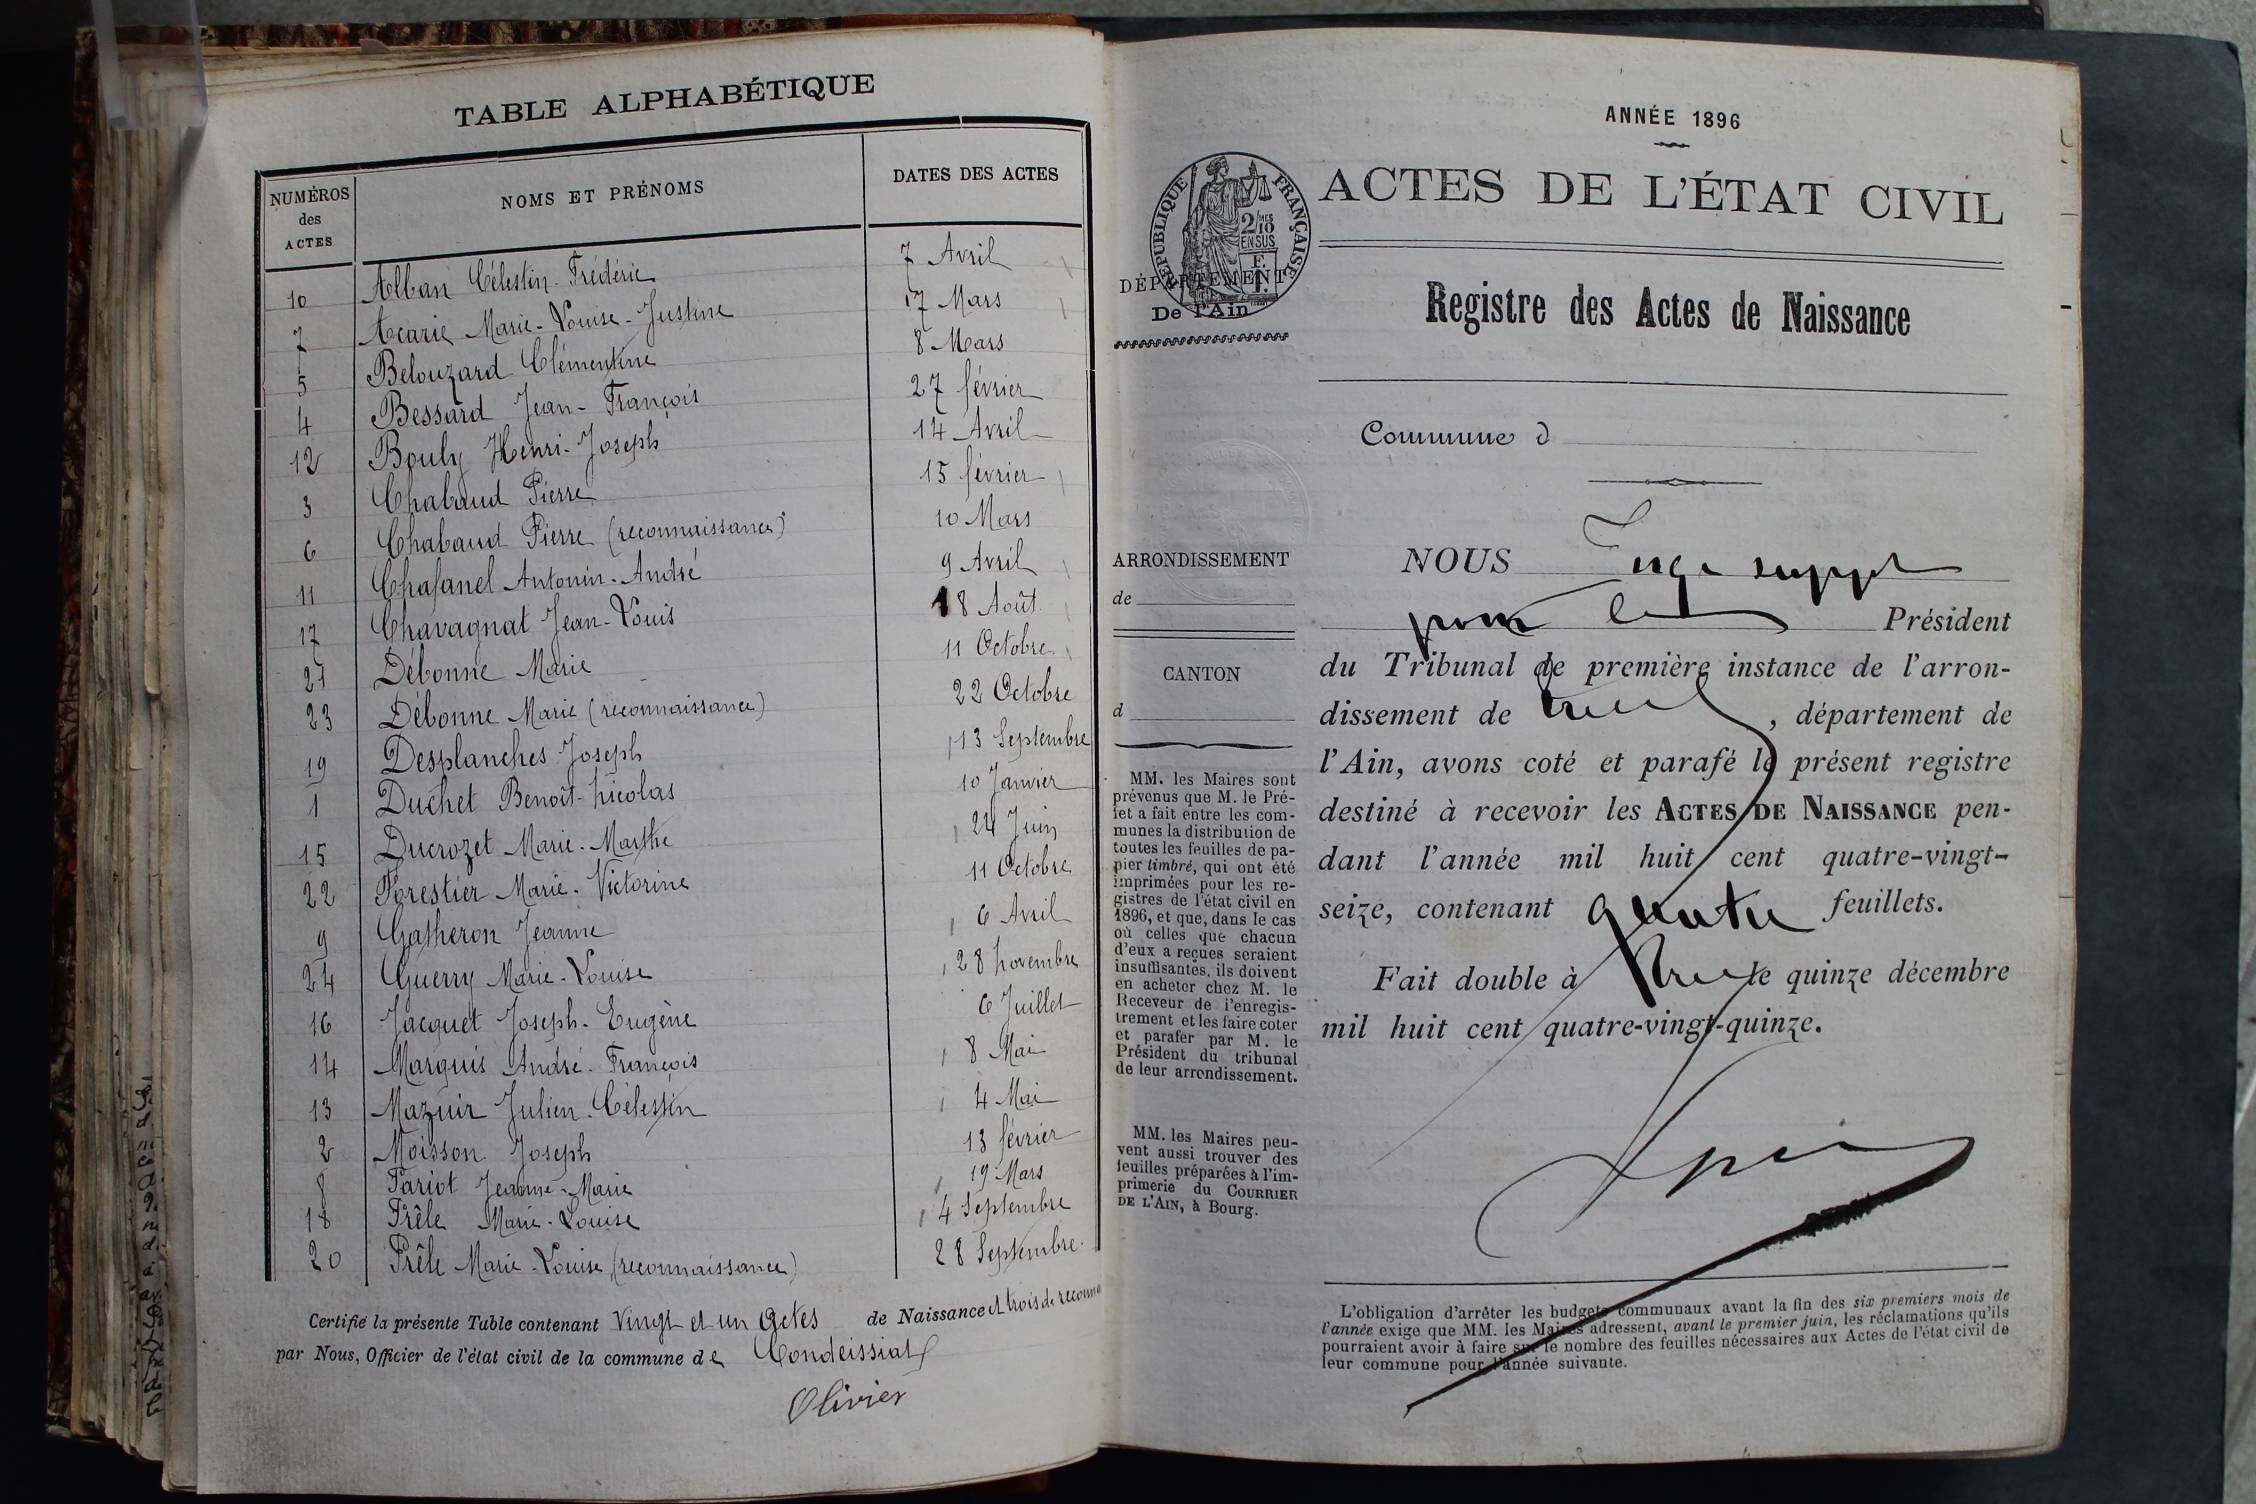 TABLE ALPHABÉTIQUE
NUMÉROS des ACTES NOMS ET PRÉNOMS DATES DES ACTES
10 Alban Célestin-Frédéric 7 Avril
7 Acarie Marie-Louise-Justine 17 Mars
5 Belouzard Clémentine 8 Mars
4 Bessard Jean-François 27 février
12 Bouly Henri-Joseph 14 Avril
3 Chabaud Pierre 15 février
6 Chabaud Pierre (reconnaissance) 10 Mars
11 Chafanel Antonin-André 9 Avril
17 Chavagnat Jean-Louis 18 Août
21 Débonne Marie 11 Octobre
23 Débonne Marie (reconnaissance) 22 Octobre
19 Desplanches Joseph 13 Septembre
1 Duchet Benoît-Nicolas 10 Janvier
15 Ducrozet Marie-Marthe 24 Juin
22 Forestier Marie-Victorine 11 Octobre
9 Gatheron Jeanne 6 Avril
24 Guerry Marie-Louise 28 Novembre
16 Jacquet Joseph-Eugène 6 Juillet
14 Marquis André-François 8 Mai
13 Mazuir Julien-Célestin 4 Mai
2 Moisson Joseph 13 février
8 Pariot Jeanne-Marie 19 Mars
18 Prêle Marie-Louise 4 Septembre
20 Prêle Marie-Louise (reconnaissance) 28 Septembre
Certifié la présente Table contenant Vingt et un Actes de Naissance et trois de reconna
par Nous, Officier de l'état civil de la commune de Condeissiat
Olivier
ANNÉE 1896
RÉPUBLIQUE FRANÇAISE
2/10 MES
EN SUS
ACTES DE L'ÉTAT CIVIL
DÉPARTEMENT
De l'Ain
Registre des Actes de Naissance
Commune d
ARRONDISSEMENT
de
CANTON
d
MM. les Maires sont
prévenus que M. le Pré-
fet a fait entre les com-
munes la distribution de
toutes les feuilles de pa-
pier timbré, qui ont été
imprimées pour les re-
gistres de l'état civil en
1896, et que, dans le cas
où celles que chacun
d'eux a reçues seraient
insuffisantes, ils doivent
en acheter chez M. le
Receveur de l'enregis-
trement et les faire coter
et parafer par M. le
Président du tribunal
de leur arrondissement.
MM. les Maires peu-
vent aussi trouver des
feuilles préparées à l'im-
primerie du COURRIER
DE L'AIN, à Bourg.
NOUS Juge suppt
pour le Président
du Tribunal de première instance de l'arron-
dissement de , département de
l'Ain, avons coté et parafé le présent registre
destiné à recevoir les ACTES DE NAISSANCE pen-
dant l'année mil huit cent quatre-vingt-
seize, contenant quatre feuillets.
Fait double à le quinze décembre
mil huit cent quatre-vingt-quinze.
L'obligation d'arrêter les budgets communaux avant la fin des six premiers mois de
l'année exige que MM. les Maires adressent, avant le premier juin, les réclamations qu'ils
pourraient avoir à faire sur le nombre des feuilles nécessaires aux Actes de l'état civil de
leur commune pour l'année suivante.